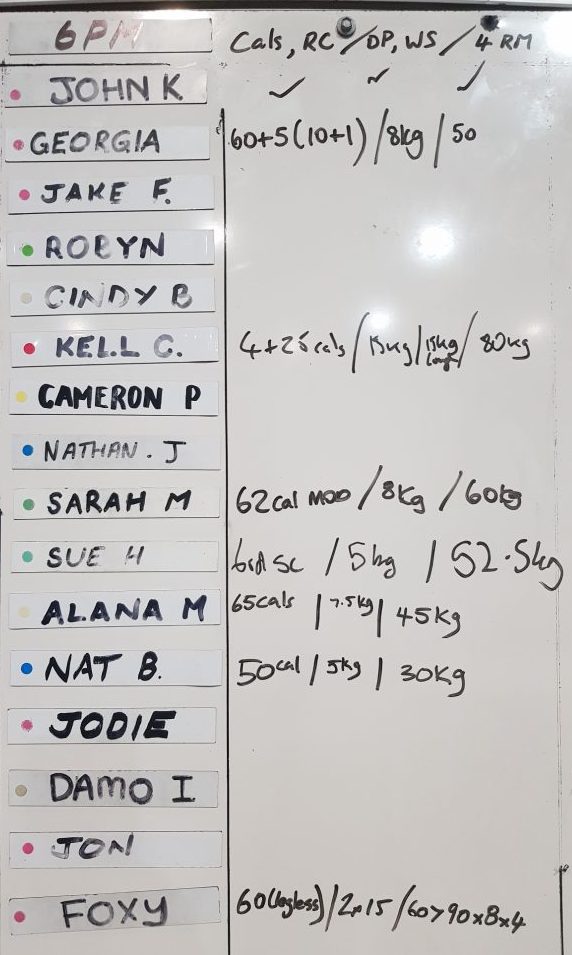 6PM Cals, RC / DP, WS / 4 RM
JOHN K ✓ ✓ ✓
GEORGIA 60+5(10+1) / 8kg / 50
JAKE F.
ROBYN
CINDY B
KELL C. 4+25cals / 15kg / 15kg / 80kg
CAMERON P
NATHAN. J
SARAH M 62cal MOD / 8Kg / 60kg
SUE H / 5kg / 52.5kg
ALANA M 65cals / 7.5kg / 45Kg
NAT B. 50cal / 5kg / 30Kg
JODIE
DAMO I
JON
FOXY 60(legless) / 15 / 60>90x8x4